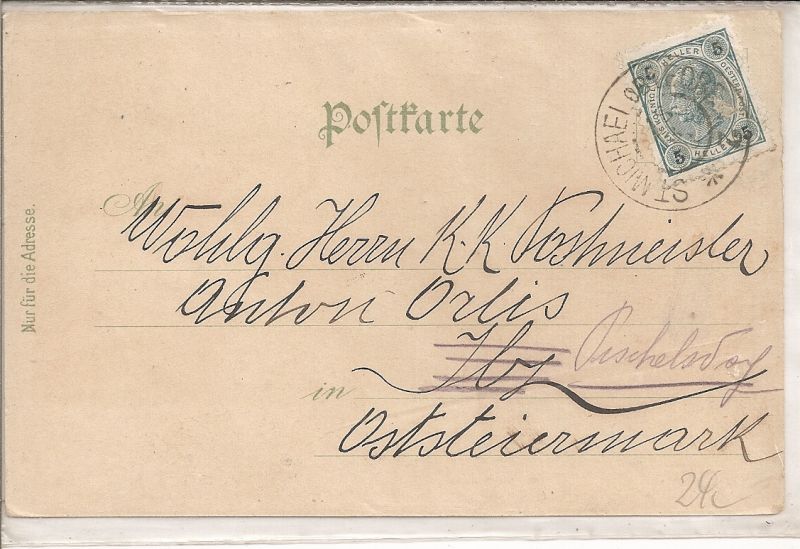 Postkarte
ST. MICHAEL OB
5 HELLER 5
5 HELLER 5
An
Wohlg. Herrn K. K. Postmeister
Anton Orlis
Ilz Pischelsdorf
in
Oststeiermark
Nur für die Adresse.